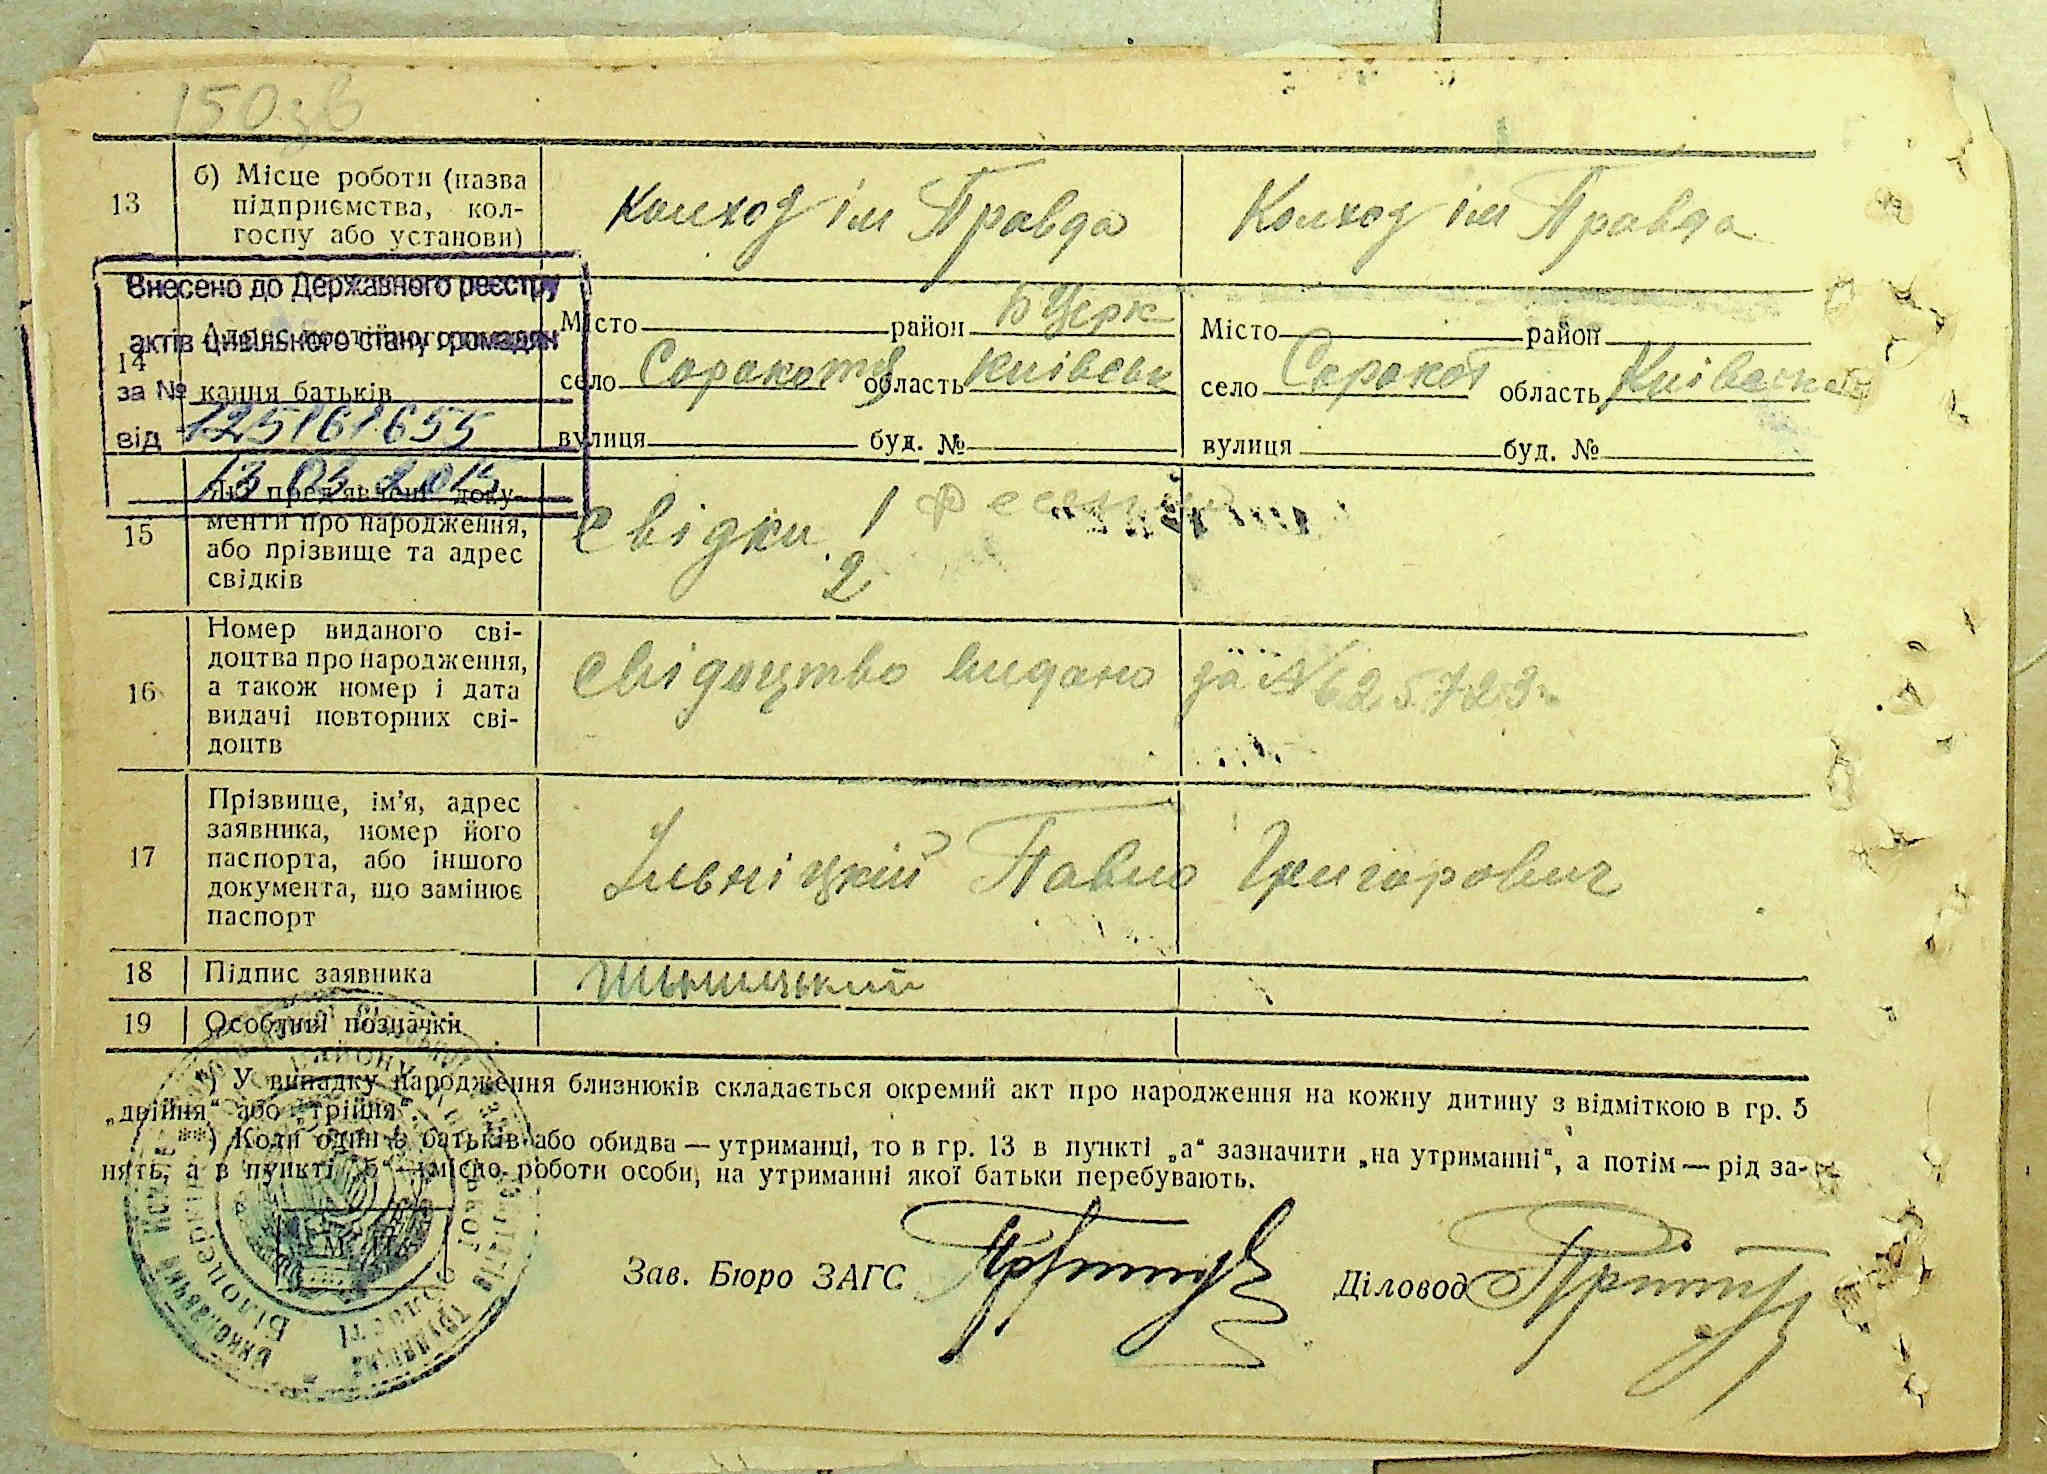 150зв
13
б) Місце роботи (назва
підприємства, кол-
госпу або установи)
Колхоз ім Правда
Колхоз ім Правда
Внесено до Державного реєстру
актів цивільного стану громадян
за №
від 125161655
13 03 2015
14
кання батьків
Місто район Б Церк
село Сорокотя область Київськ
вулиця буд. №
Місто район
село Сорокот область Київська
вулиця буд. №
15
Які пред'явлені доку-
менти про народження,
або прізвище та адрес
свідків
Свідки 1
2
16
Номер виданого сві-
доцтва про народження,
а також номер і дата
видачі повторних сві-
доцтв
Свідоцтво видано за №
17
Прізвище, ім'я, адрес
заявника, номер його
паспорта, або іншого
документа, що замінює
паспорт
Ільніцкій Павло Григорович
18
Підпис заявника
19
Особливі позначки
*) У випадку народження близнюків складається окремий акт про народження на кожну дитину з відміткою в гр. 5
„двійня“ або „трійня“.
**) Коли один з батьків або обидва — утриманці, то в гр. 13 в пункті „а“ зазначити „на утриманні“, а потім — рід за-
нять, а в пункті „б“ — місце роботи особи, на утриманні якої батьки перебувають.
Зав. Бюро ЗАГС
Діловод